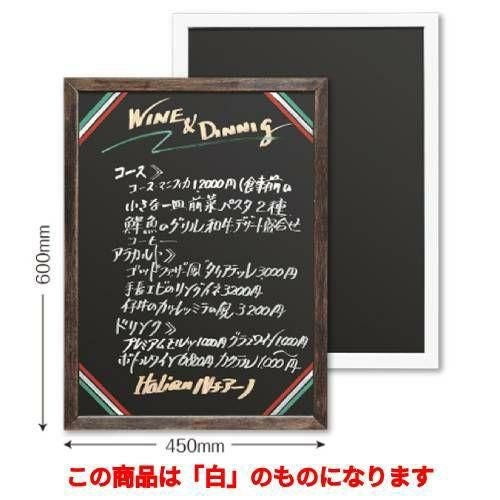 WINE & DINNIG
コース》
コースマニフィカ12000円(食事前の
小さな一皿 前菜 パスタ2種
鮮魚のグリル 和牛 デザート盛合せ
コーヒー
アラカルト》
ゴッドファザー風 タリアテッレ 3000円
手長エビのリングイネ 3200円
仔牛のカツレツ ミラノ風 3200円
ドリンク》
プレミアムモルツ 1000円 グラスワイン1000円
ボトルワイン 6800円 カクテル 1000円〜
Italian
600mm
450mm
この商品は「白」のものになります